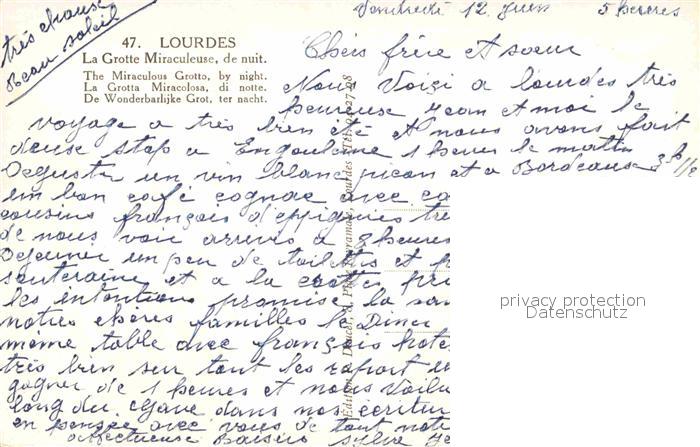 Vendredi 12 Juin 5 heures
très chause
Beau soleil
47. LOURDES
La Grotte Miraculeuse, de nuit.
The Miraculous Grotto, by night.
La Grotta Miracolosa, di notte.
De Wonderbarlijke Grot, ter nacht.
Chers frère et soeur
Nous Voiçi a lourdes très
heureuse Jean et moi le
voyage a très bien été et nous avons fait
deuse stap a Engouleme 1 heure le matin
Deguster un vin blanc et a Bordeause 3 h 1/2
un bon café cognac avec
cousins français d'eppignies
de nous voir arrives a 8 heures
Dejeuner un peu de toilettes et
souteraine et a la
les intentions promise la
notres chères familles le Diner
même table avec français
très bien sur tout les raport
gagner de 1 heures et nous
long du Gave dans nos
en pensée avec vous de tout
affectueuse Baisers
Edition A. Doucet, Lourdes
privacy protection
Datenschutz